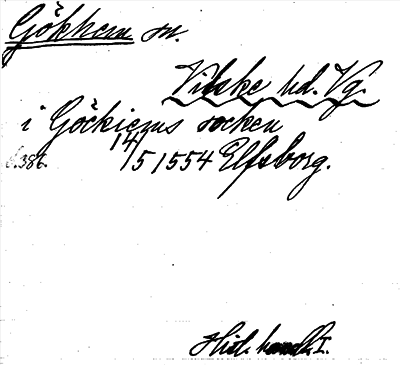 Gökhem sn.
Vilske hd. Vg.
i Göckiems socken
s.38t. 14/5 1554 Elfsborg.
Hist. handl. I.